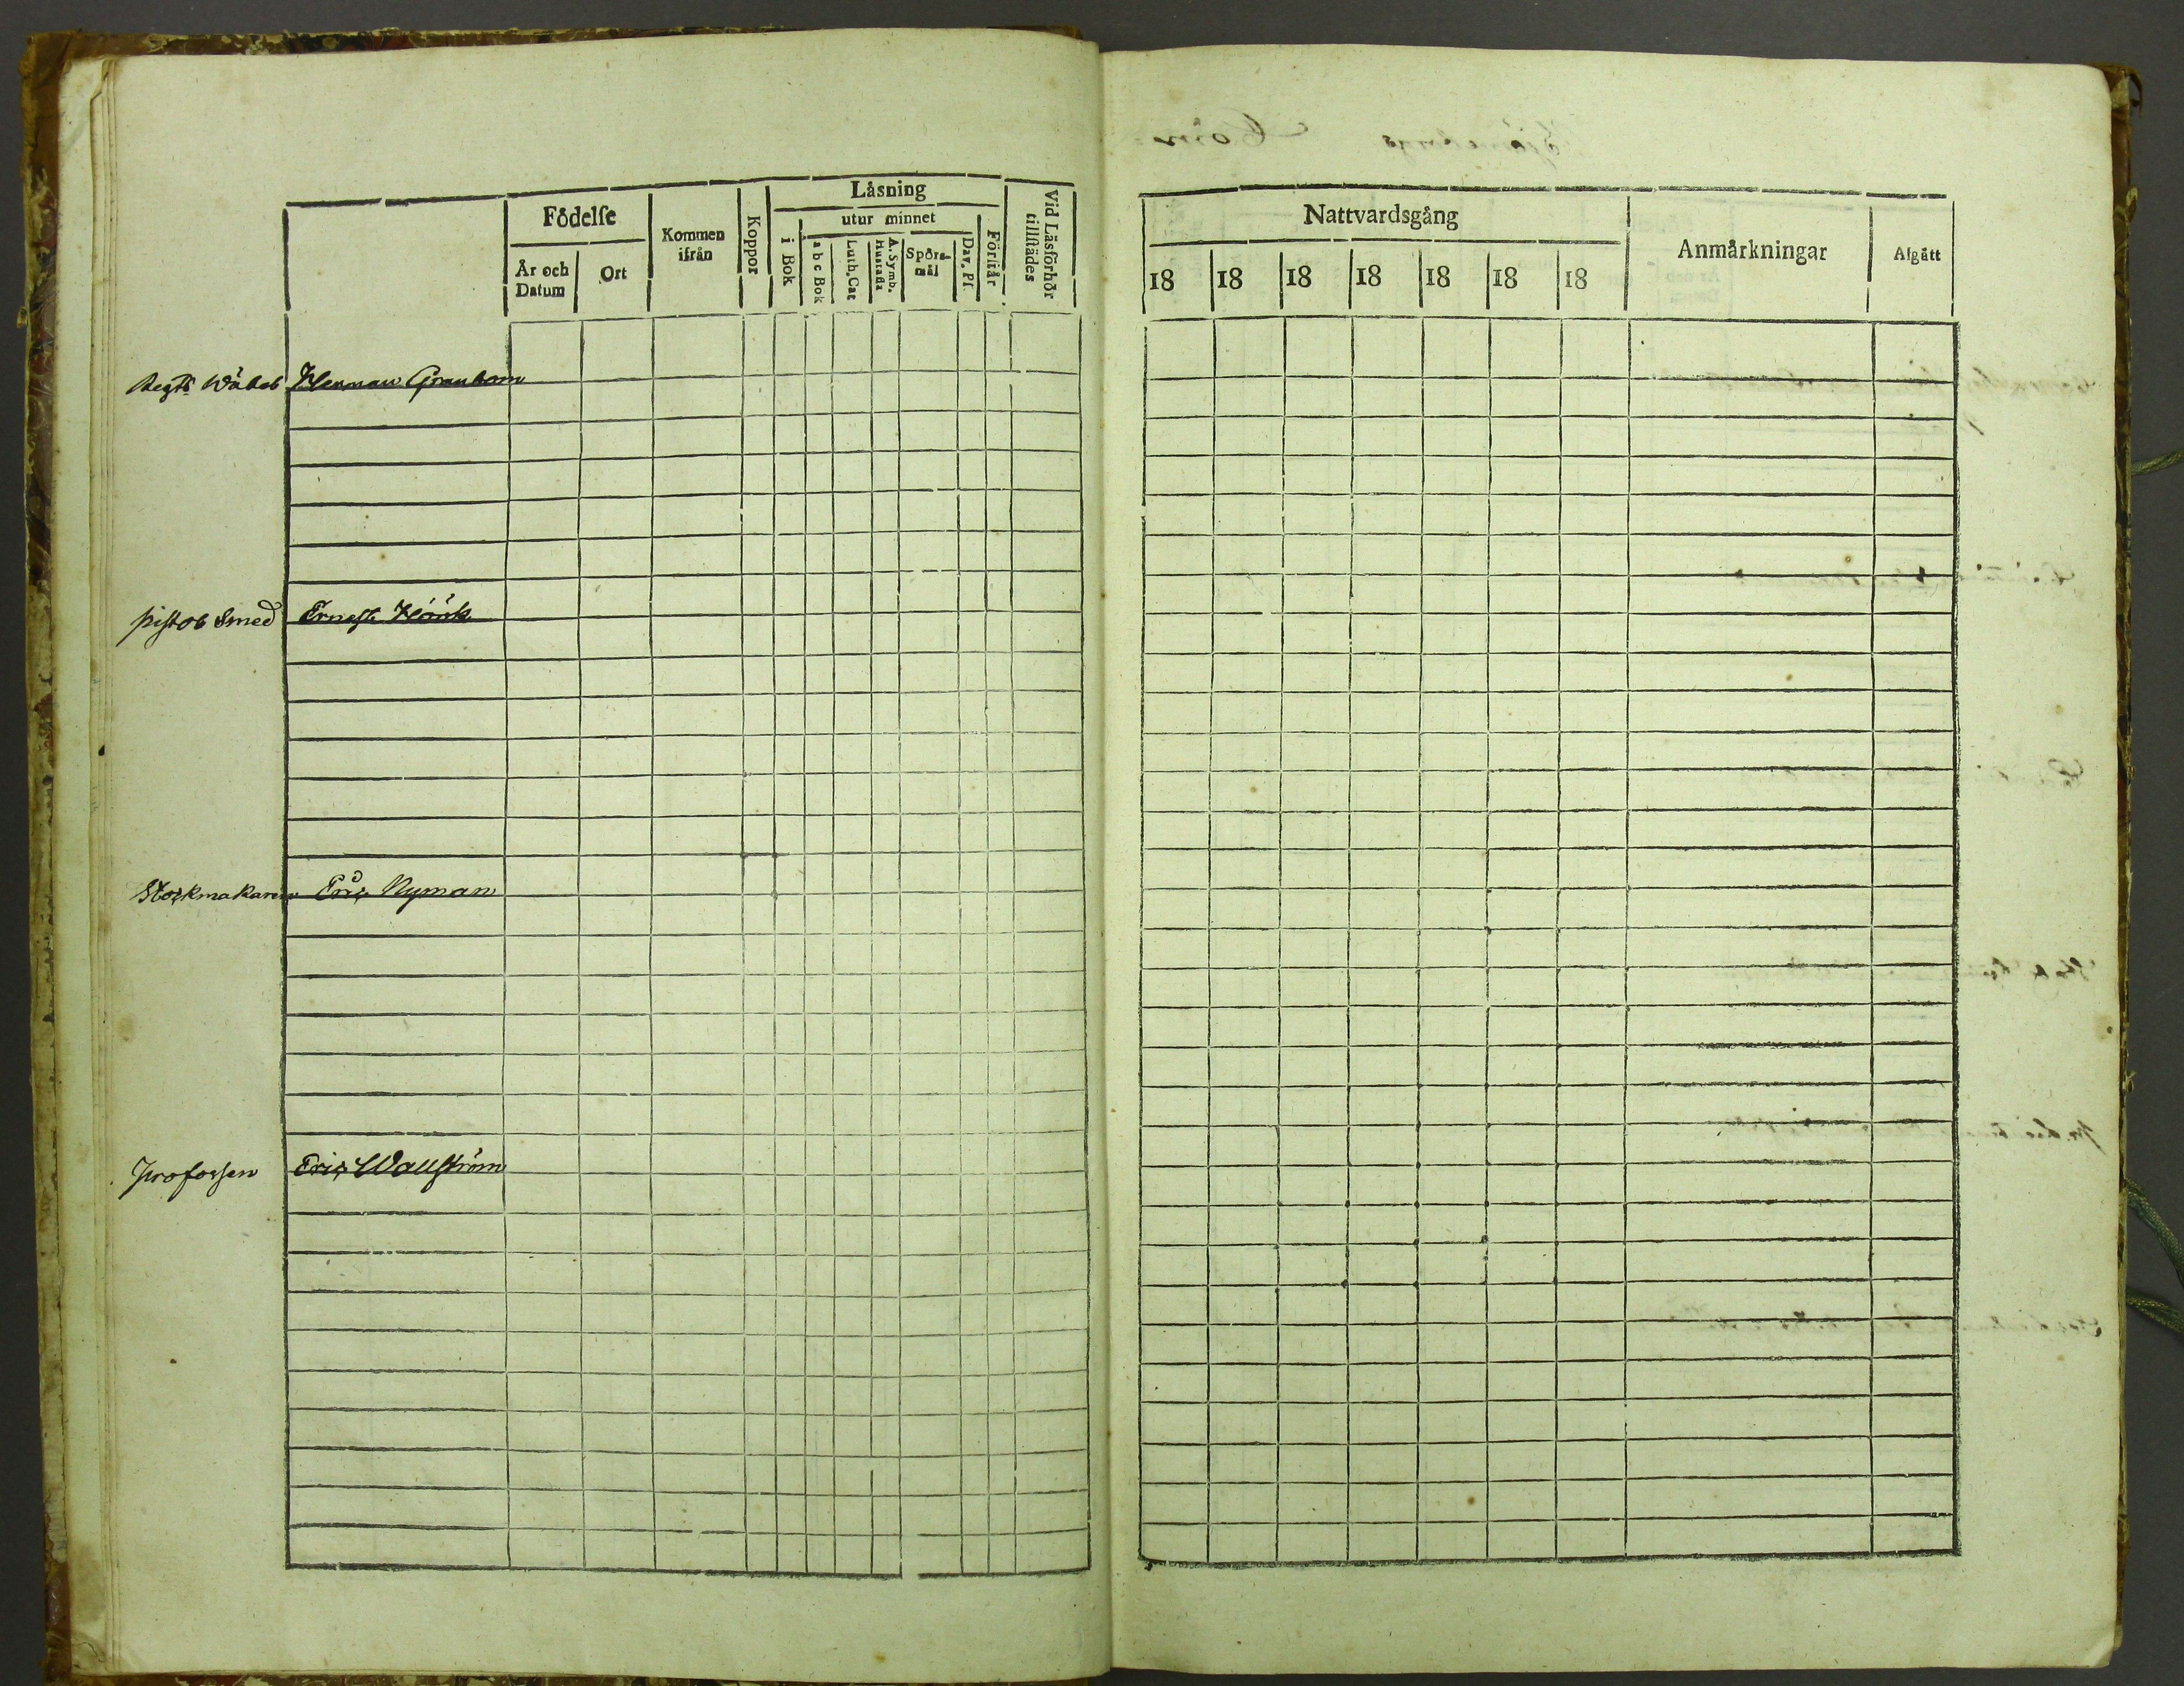 Låsning
Födelse
utur minnet
Kommen ifrån
Koppor
i Bok
a b c Bok
Luth. Cat
A. Symb. Hustafla
Spörsmål
Dav. Ps
Förstår
Vid Läsförhör tillstädes
År och Datum
Ort
Nattvardsgång
Anmärkningar
Afgått
18 18 18 18 18 18 18
Regts Wäbel Herman Granbom
pistol Smed Ernest Höök
Stockmakaren Eric Nyman
Profossen Eric Wallström